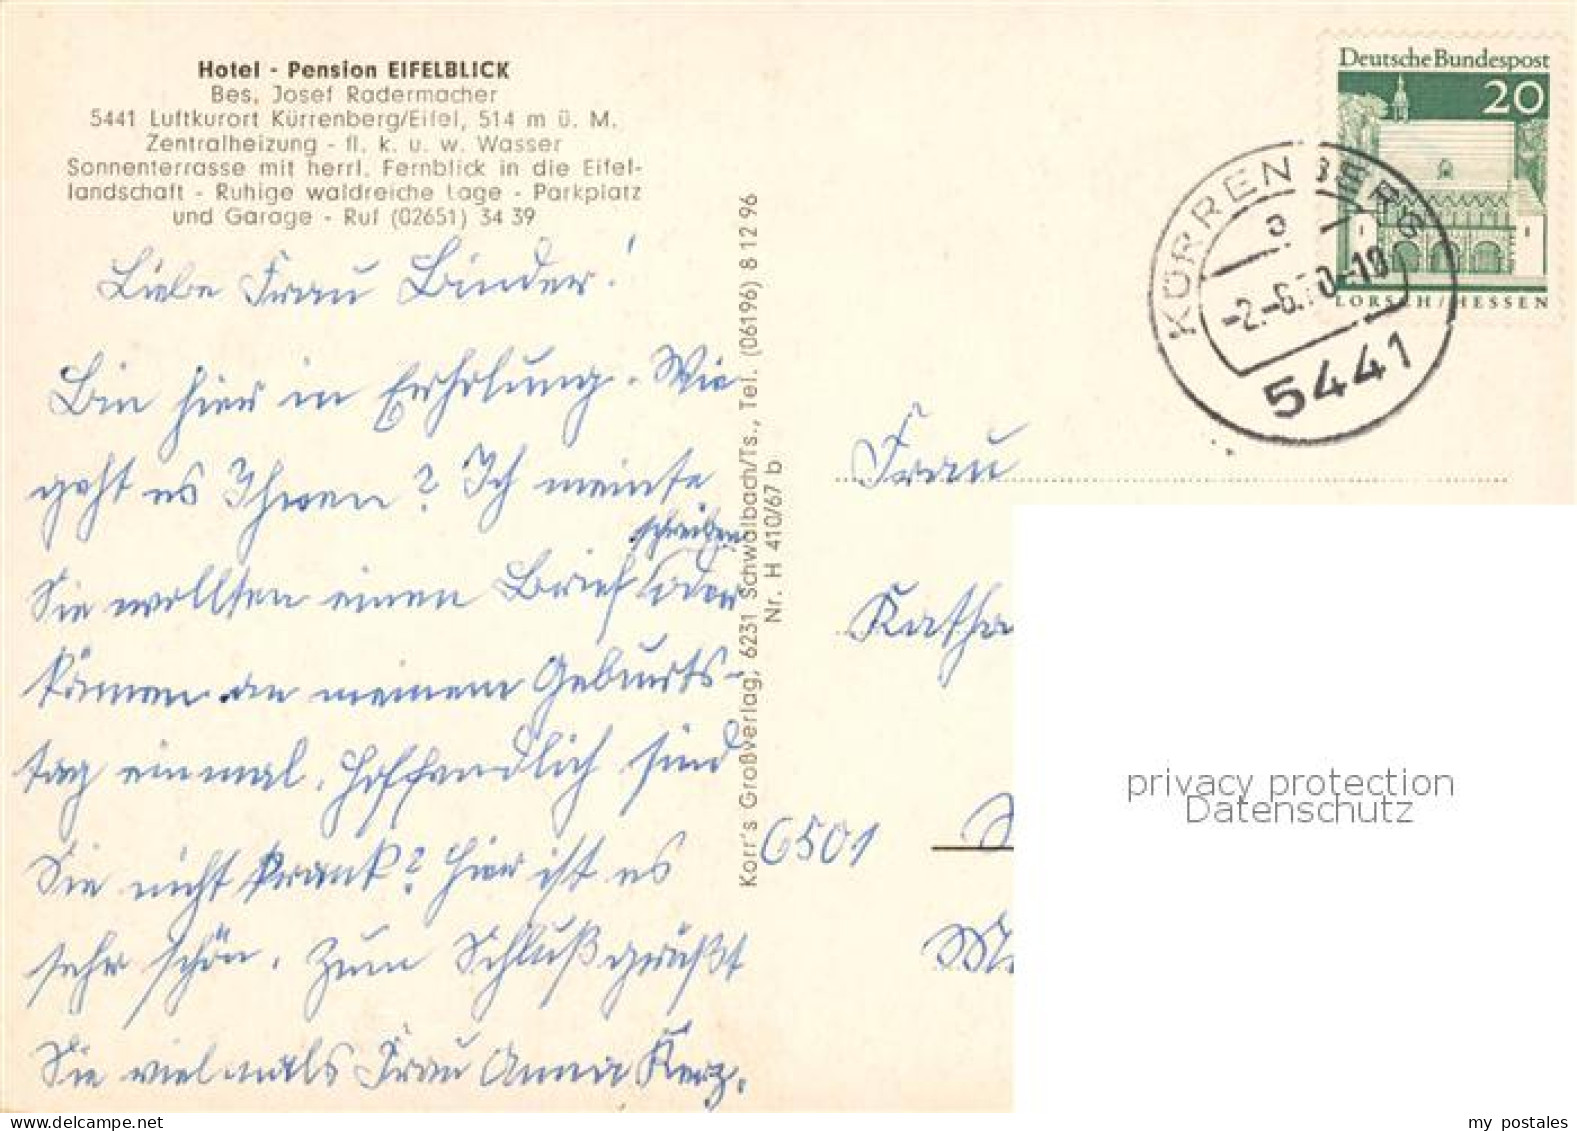 Hotel - Pension EIFELBLICK
Bes. Josef Radermacher
5441 Luftkurort Kürrenberg/Eifel, 514 m ü. M.
Zentralheizung - fl. k. u. w. Wasser
Sonnenterrasse mit herrl. Fernblick in die Eifel-
landschaft - Ruhige waldreiche Lage - Parkplatz
und Garage - Ruf (02651) 34 39
Liebe Frau Binder!
Bin hier in Erholung. Wie
geht es Ihnen? Ich meinte
schreiben
Sie wollten einen Brief oder
kämen an meinem Geburts-
tag einmal. Hoffendlich sind
Sie nicht krank? Hier ist es
sehr schön. Zum Schluß grüßt
Sie vielmals Frau Anna Kerz.
Korr's Großverlag, 6231 Schwalbach/Ts., Tel. (06196) 8 12 96
Nr. H 410/67 b
Deutsche Bundespost
20
LORSCH/HESSEN
KÜRRENBERG
a
-2.-6.70.-18
5441
Frau
Katha
6501
M
privacy protection
Datenschutz
my postales